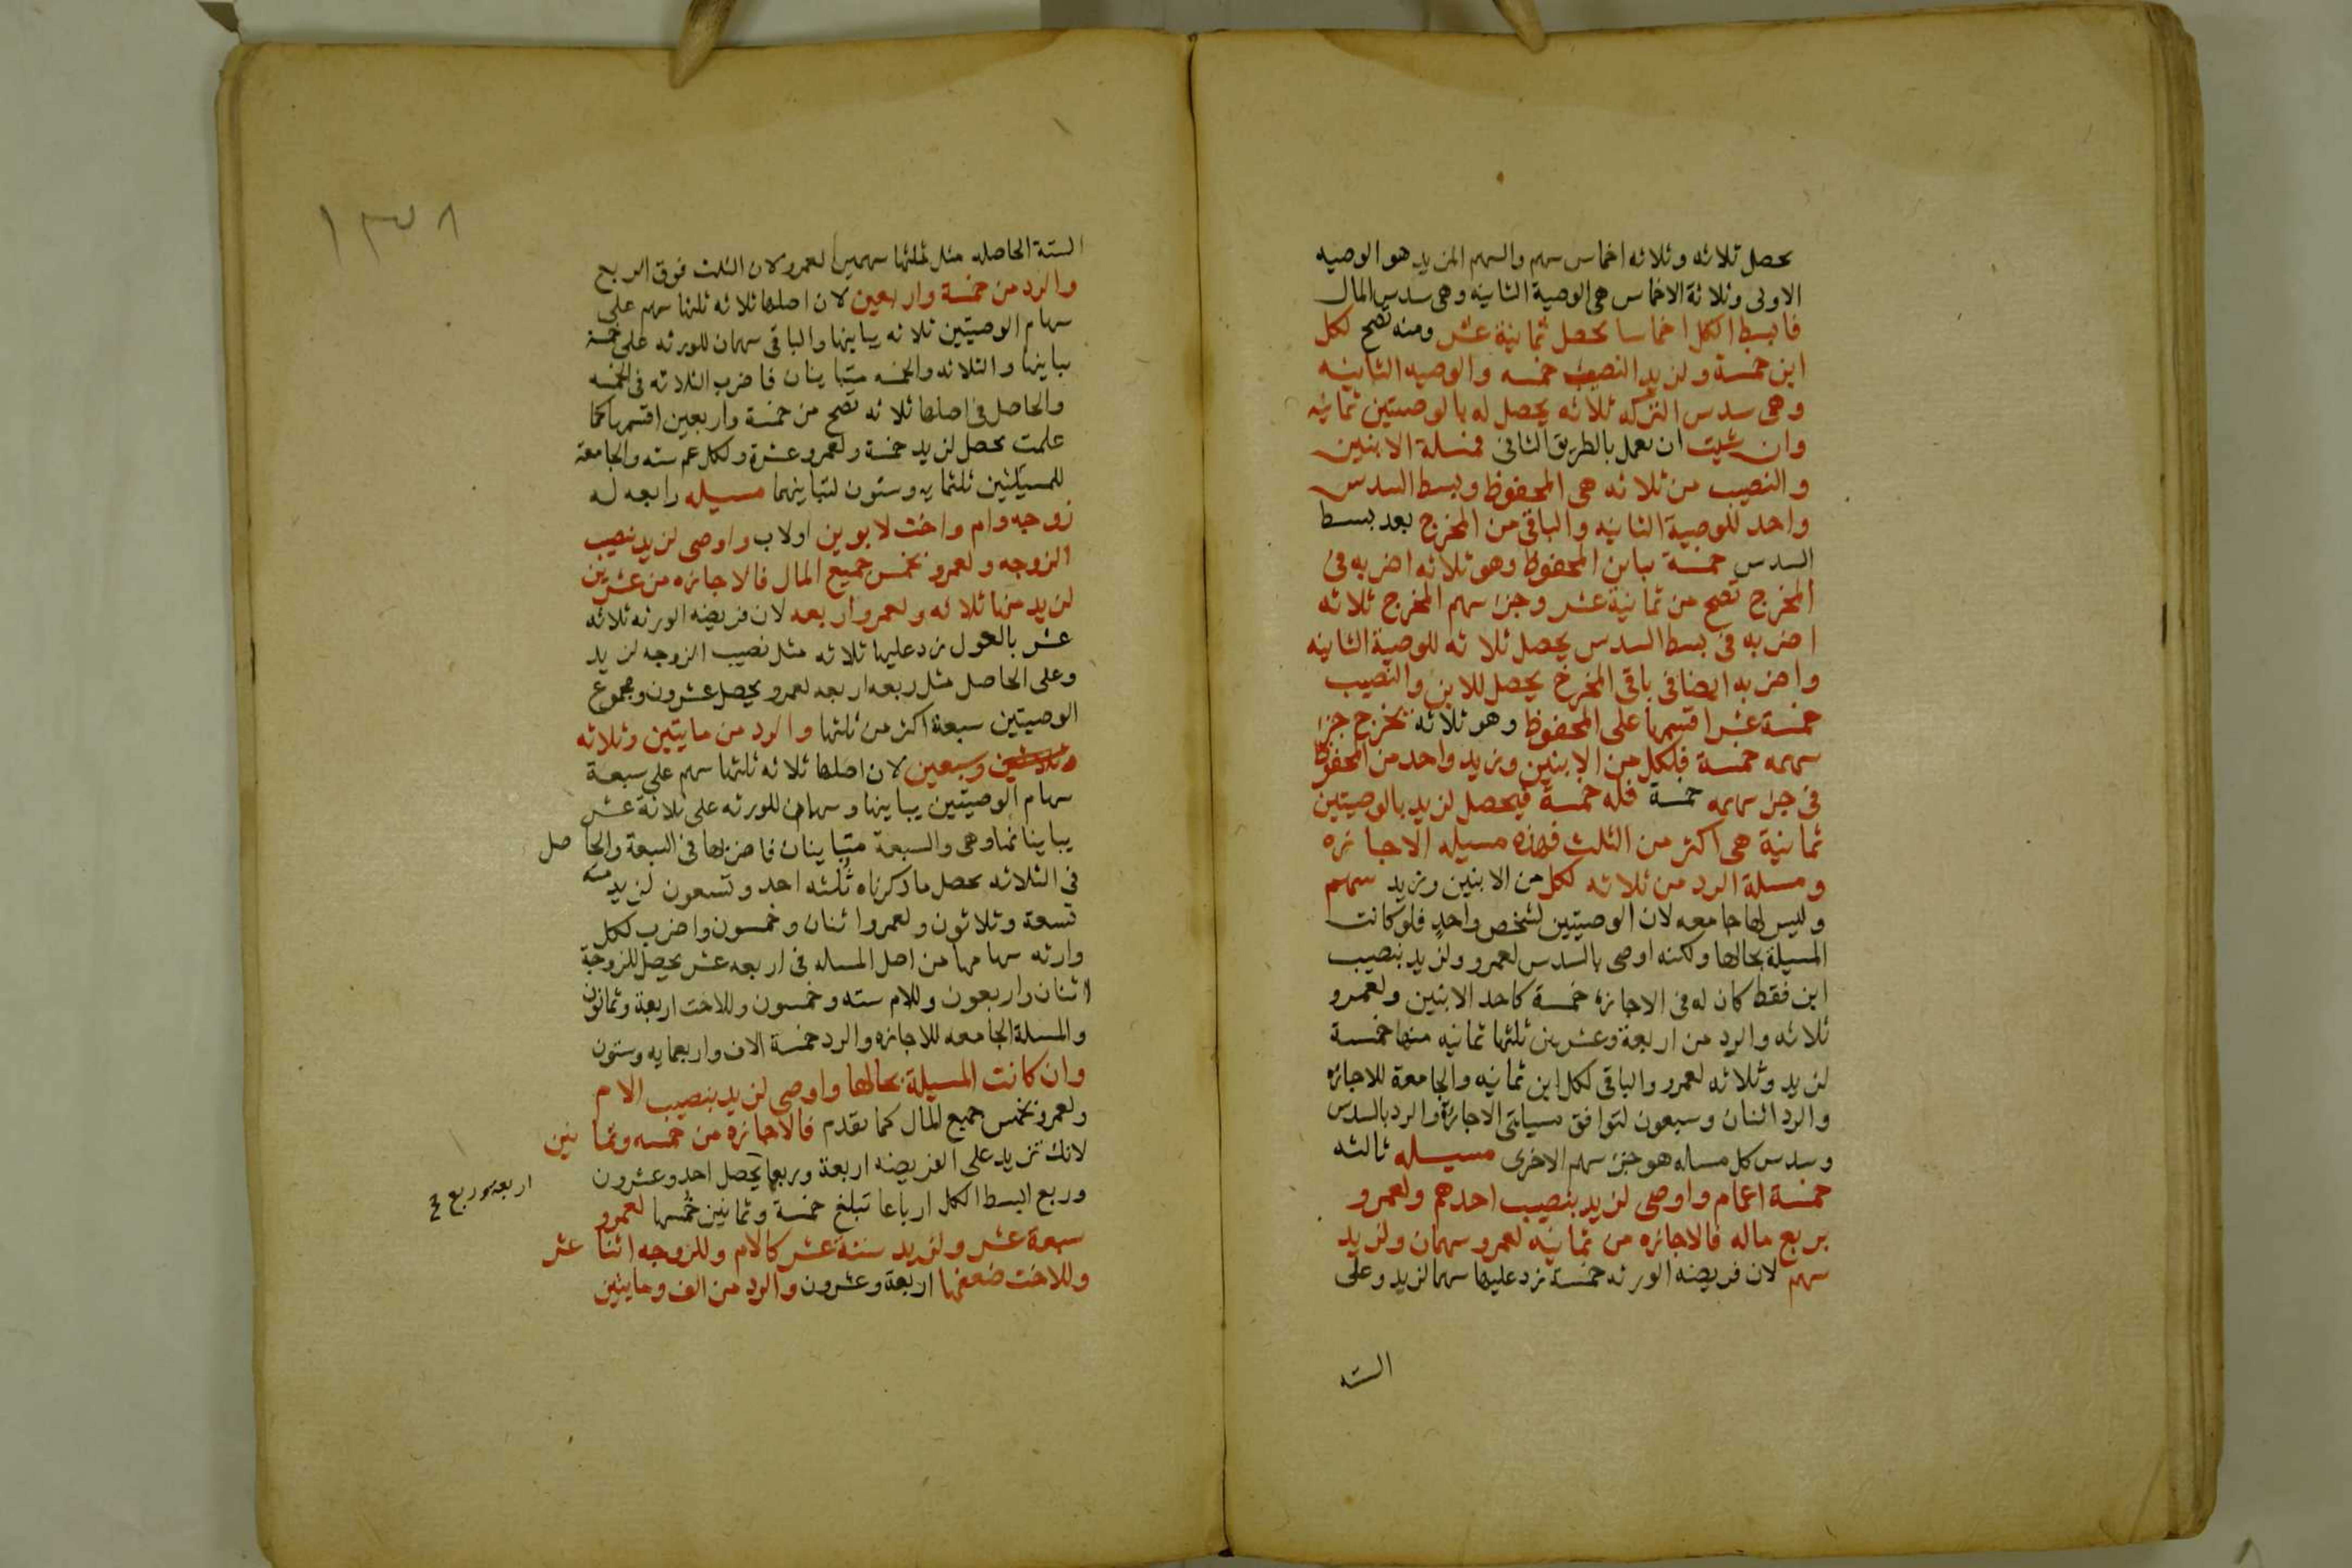 يحصل ثلاثه وثلاثه اخماس سهم والسهم المزيد هو الوصيه
الاولى وثلاثة الاخماس هى الوصية الثانيه وهى سدس المال
فابسط الكل اخماسا يحصل ثمانية عشر ومنه تصح لكل
ابن خمسة ولزيد النصيب خمسه والوصيه الثانيه
وهى سدس التركه ثلاثه يحصل له بالوصيتين ثمانيه
وان شيت ان تعمل بالطريق الثانى فمسلة الابنين
والنصيب من ثلاثه هى المحفوظ وبسط السدس
واحد للوصية الثانيه والباقى من المخرج بعد بسط
السدس خمسة تباين المحفوظ وهو ثلاثه اضربه فى
المخرج تصح من ثمانية عشر وجزء سهم المخرج ثلاثه
اضربه فى بسط السدس يحصل ثلاثه للوصية الثانيه
واضربه ايضا فى باقى المخرج يحصل للابن والنصيب
خمسة عشر اقسمها على المحفوظ وهو ثلاثه يخرج جزء
سهمه خمسة فلكل من الابنين وزيد واحد من المحفوظ
فى جزء سهمه خمسة فله خمسة فيحصل لزيد بالوصيتين
ثمانية هى اكثر من الثلث فهذه مسيله الاجازه
ومسلة الرد من ثلاثه لكل من الابنين وزيد سهم
وليس لها جامعه لان الوصيتين لشخص واحد فلو كانت
المسيلة بحالها ولكنه اوصى بالسدس لعمرو ولزيد بنصيب
ابن فقط كان له فى الاجازه خمسة كاحد الابنين ولعمرو
ثلاثه والرد من اربعة وعشرين ثلثها ثمانيه منها خمسة
لزيد وثلاثه لعمرو والباقى لكل ابن ثمانيه والجامعة للاجازه
والرد اثنان وسبعون لتوافق مسيلتى الاجازة والرد بالسدس
وسدس كل مساله هو جزء سهم الاخرى مسيله ثالثه
خمسة اعمام واوصى لزيد بنصيب احدهم ولعمرو
بربع ماله فالاجازه من ثمانيه لعمرو سهمان ولزيد
سهم لان فريضه الورثه خمسة زد عليها سهما لزيد وعلى
السته
١٣٨
الستة الحاصله مثل ثلثها سهمين لعمرو لان الثلث فوق الربع
والرد من خمسة واربعين لان اصلها ثلاثه ثلثها سهم على
سهام الوصيتين ثلاثه يباينها والباقى سهمان للورثه على خمسة
يباينها والثلاثه والخمسه متباينان فاضرب الثلاثه فى الخمسه
والحاصل فى اصلها ثلاثه تصح من خمسة واربعين اقسمها كما
علمت يحصل لزيد خمسة ولعمرو عشرة ولكل عم سته والجامعة
للمسيلتين ثلثمايه وستون لتباينهما مسيله رابعه له
زوجه وام واخت لابوين اولاب واوصى لزيد بنصيب
الزوجه ولعمرو بخمس جميع المال فالاجازه من عشرين
لزيد منها ثلاثه ولعمرو اربعه لان فريضه الورثه ثلاثه
عشر بالعول زد عليها ثلاثه مثل نصيب الزوجه لزيد
وعلى الحاصل مثل ربعه اربعه لعمرو يحصل عشرون ومجموع
الوصيتين سبعة اكثر من ثلثها والرد من مايتين وثلاثه
وسبعين لان اصلها ثلاثه ثلثها سهم على سبعة
سهام الوصيتين يباينها وسهمان للورثه على ثلاثة عشر
يباينانها وهى والسبعة متباينان فاضربها فى السبعة والحاصل
فى الثلاثه يحصل ما ذكرناه ثلثه احد وتسعون لزيد منه
تسعة وثلاثون ولعمرو اثنان وخمسون واضرب لكل
وارثه سهامها من اصل المساله فى اربعه عشر يحصل للزوجة
اثنان واربعون وللام سته وخمسون وللاخت اربعة وثمانون
والمسلة الجامعه للاجازه والرد خمسة الاف واربعمايه وستون
وان كانت المسيلة بحالها واوصى لزيد بنصيب الام
ولعمرو بخمس جميع المال كما تقدم فالاجازه من خمسه وثمانين
لانك تزيد على الفريضه اربعة وربعا يحصل احد وعشرون
اربعه وربع
وربع ابسط الكل ارباعا تبلغ خمسة وثمانين خمسها لعمرو
سبعة عشر ولزيد ستة عشر كالام وللزوجه اثنا عشر
وللاخت ضعفها اربعة وعشرون والرد من الف ومايتين